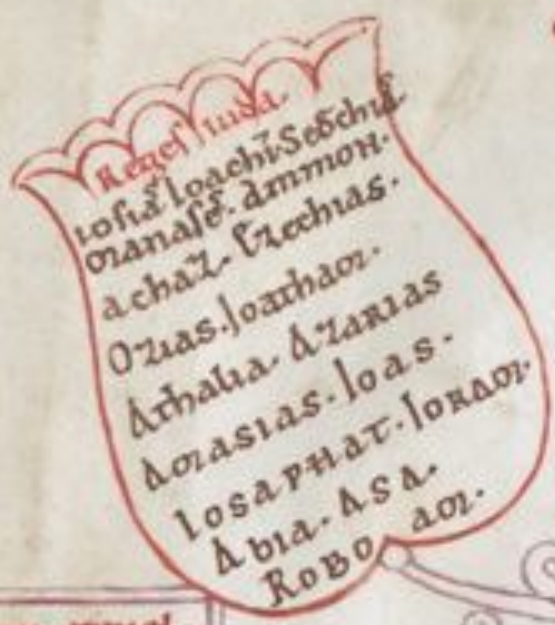 Reges iuda.
iosias Ioachī. Sedechias
Manases. Ammon.
achaz. Ezechias.
Ozias. Joatham.
Athalia. Azarias
Amasias. Ioas.
Iosaphat. Joram.
Abia. Asa.
Roboam.